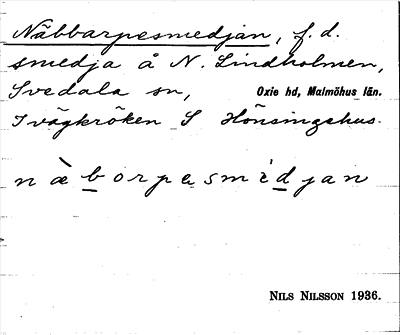 Näbbarpesmedjan, f.d.
smedja å N. Lindholmen,
Svedala sn, Oxie hd, Malmöhus län.
I vägkröken S Hönsingehus.
næ̀borpesmèdjan
NILS NILSSON 1936.